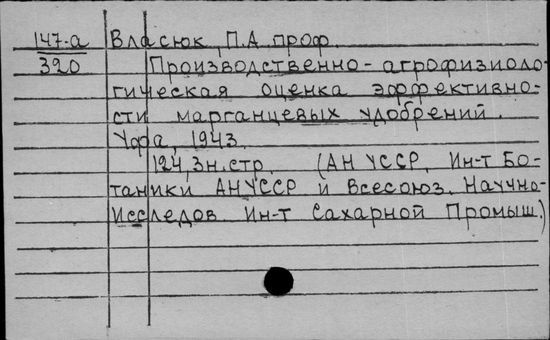 147-а Власюк, П.А. проф.
320 Производственно-агрофизиоло-
гическая оценка эффективно-
сти марганцевых удобрений.
Уфа, 1943.
124, 3н.стр. (АН УССР, Ин-т Бо-
таники АН УССР и Всесоюз. Научно-
Исследов. Ин-т Сахарной Промыш.)